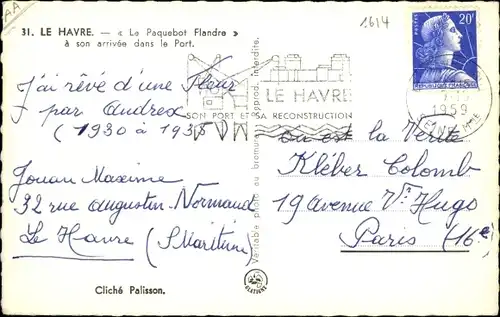 AA
31. LE HAVRE. — « Le Paquebot Flandre »
à son arrivée dans le Port.
1614
20F
REPUBLIQUE FRANÇAISE
1959
LE HAVRE
SON PORT ET SA RECONSTRUCTION
J'ai rêvé d'une Fleur
par Andrex
(1930 à 1938)
Jouan Maxime
32 rue augustin-Normand
Le Havre (S.Maritime)
Véritable photo au bromure
reprod. interdite.
Ou est la Vérité
Kléber Colomb
19 avenue Vr Hugo
Paris (16e)
Cliché Palisson.